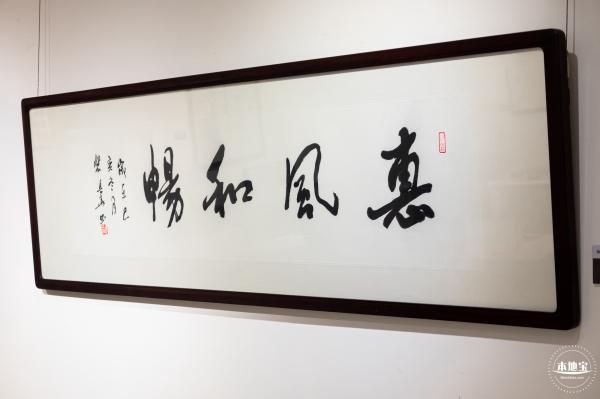 惠風和暢
歲在己
亥冬月
本地宝